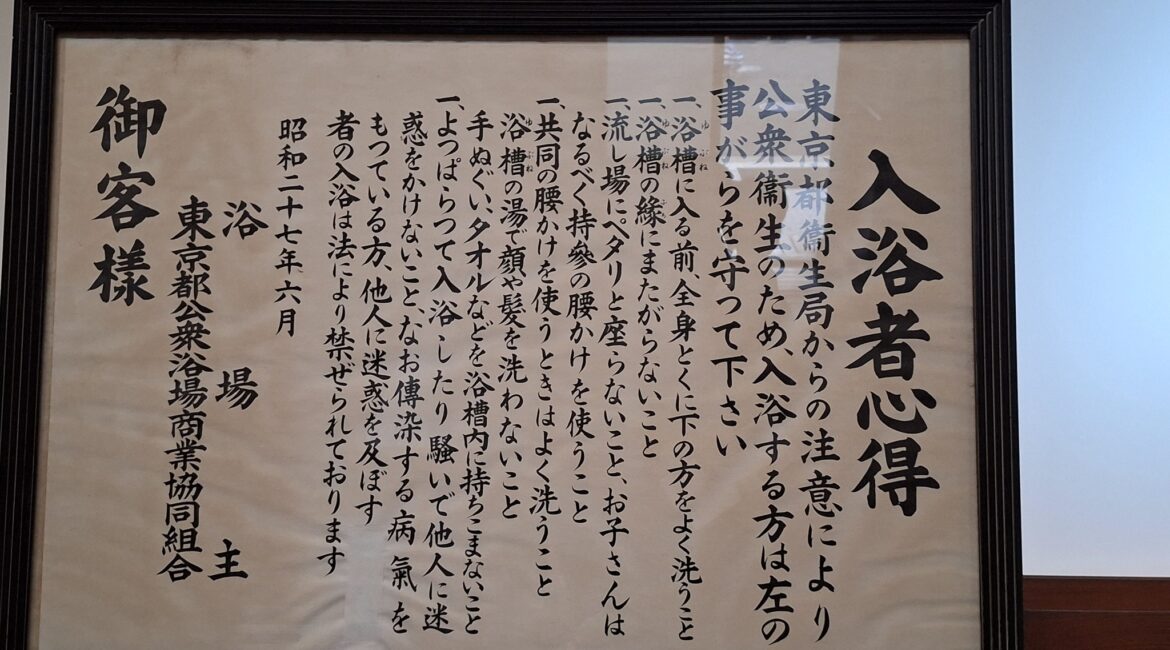 入浴者心得
東京都衞生局からの注意により
公衆衞生のため、入浴する方は左の
事がらを守つて下さい
一、浴槽に入る前、全身とくに下の方をよく洗うこと
一、浴槽の緣にまたがらないこと
一、流し場にペタリと座らないこと、お子さんは
なるべく持參の腰かけを使うこと
一、共同の腰かけを使うときはよく洗うこと
浴槽の湯で顔や髪を洗わないこと
手ぬぐい、タオルなどを浴槽内に持ちこまないこと
一、よつぱらつて入浴したり騒いで他人に迷
惑をかけないこと、なお傳染する病氣を
もつている方、他人に迷惑を及ぼす
者の入浴は法により禁ぜられております
昭和二十七年六月
浴場主
東京都公衆浴場商業協同組合
御客樣